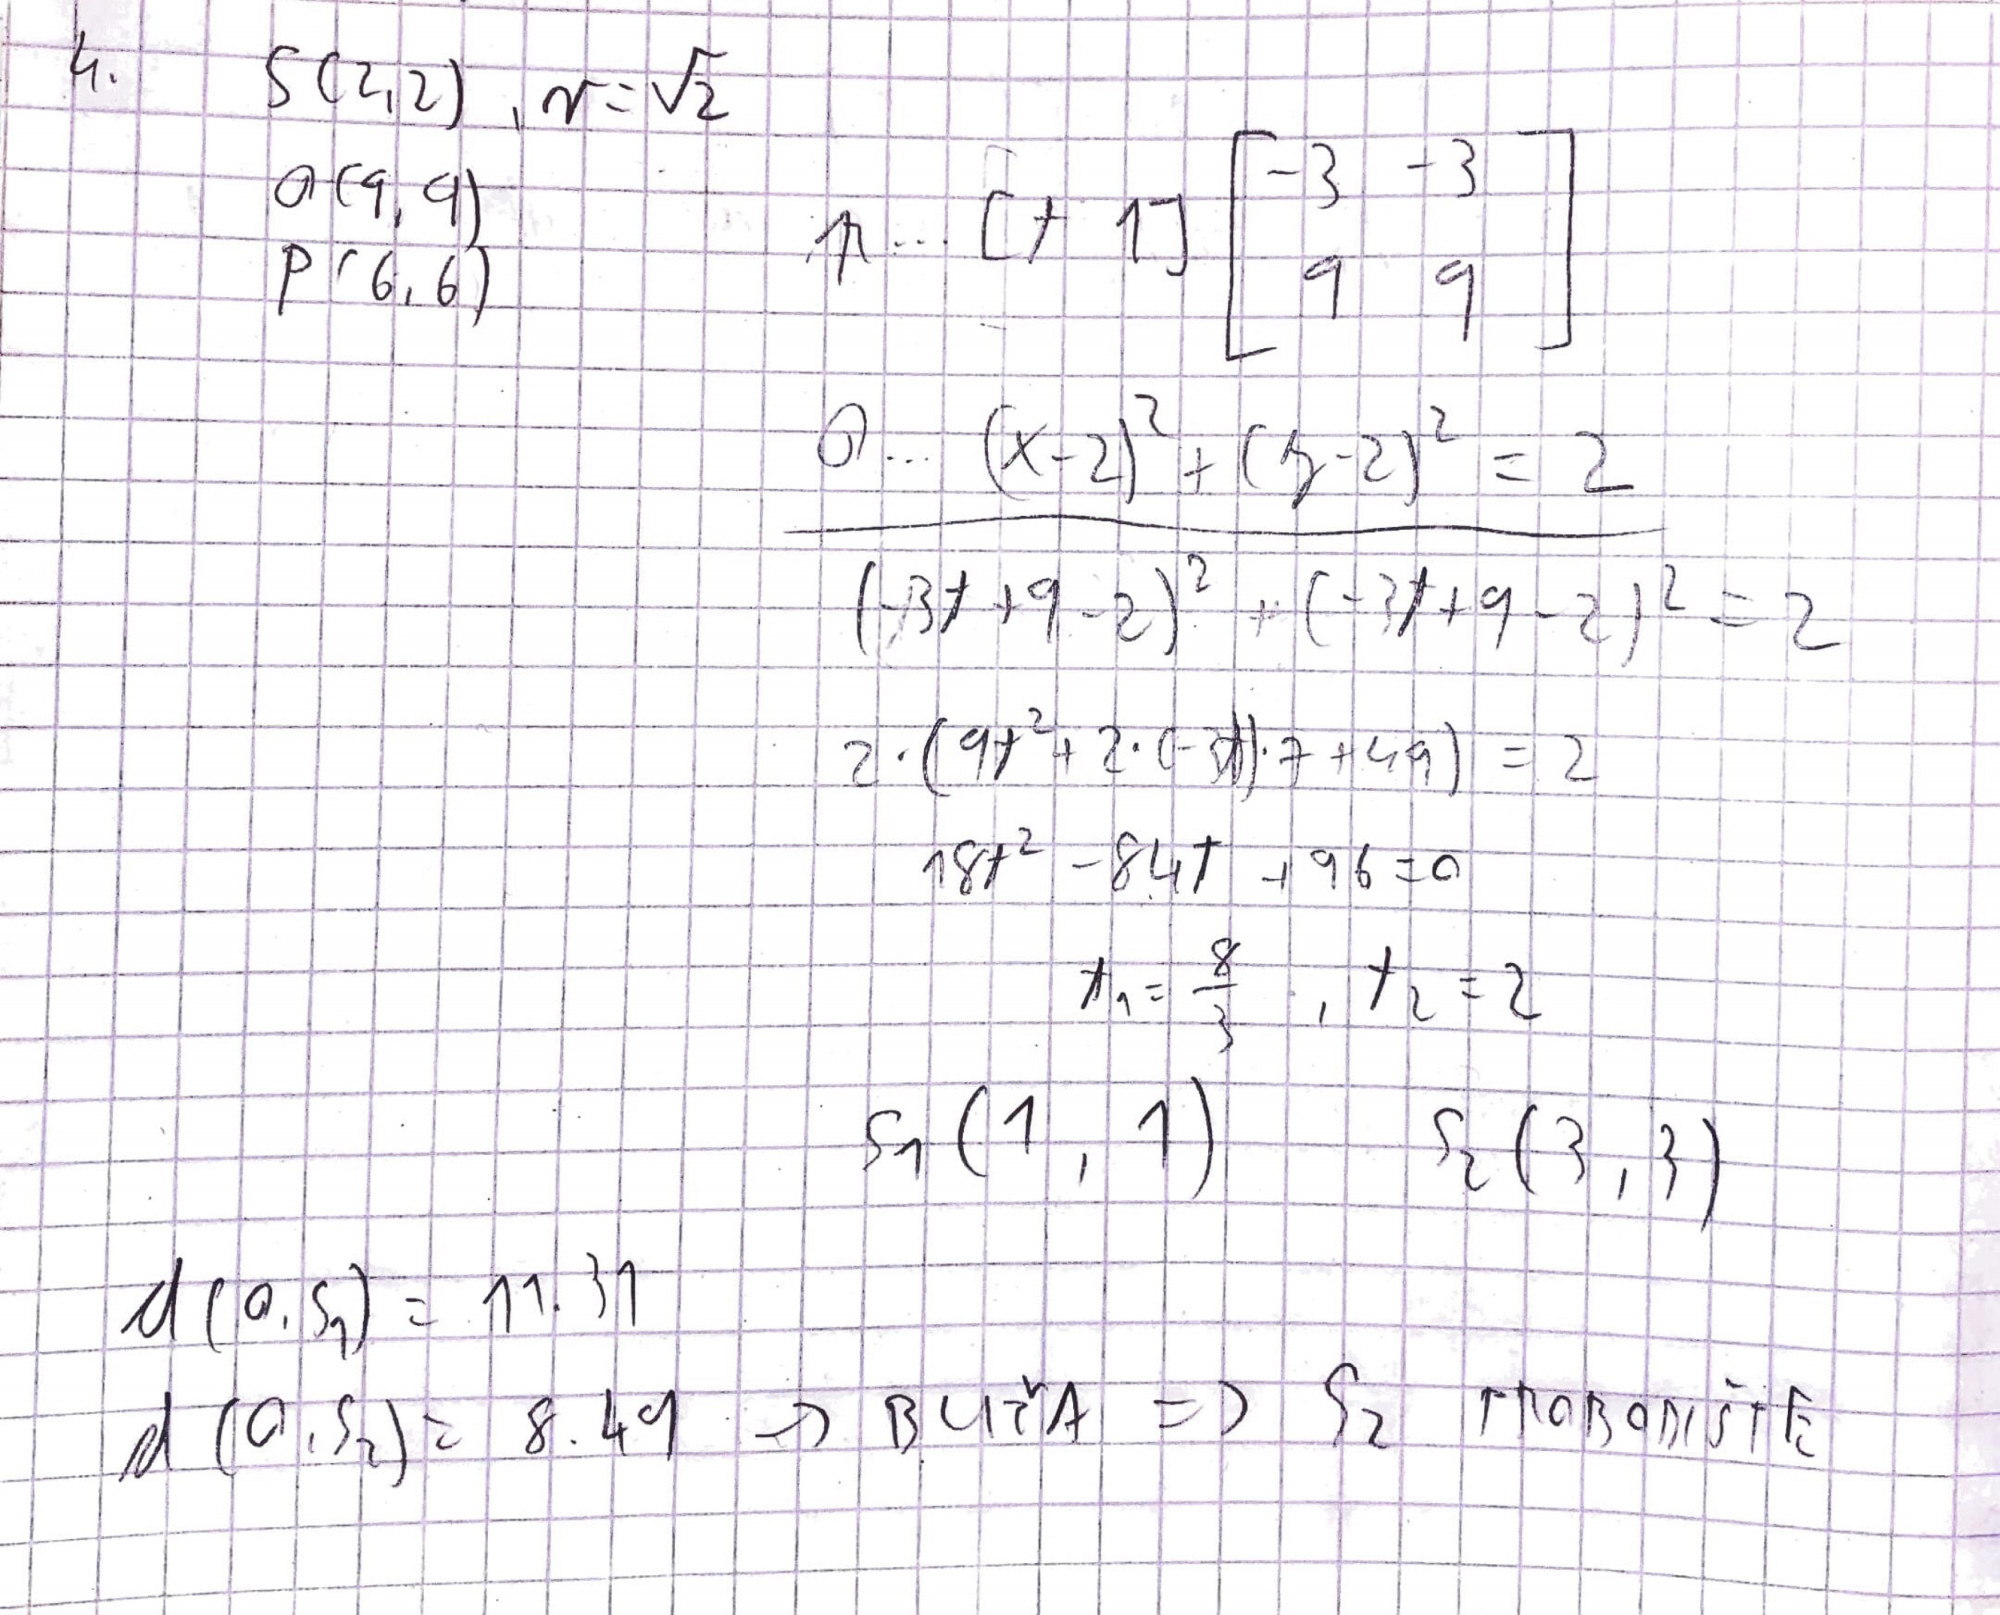 4. S(2,2), r=√2
O(9,9)
P(6,6)
p... [t 1] [-3 -3
9 9]
O... (x-2)² + (y-2)² = 2
(-3t+9-2)² + (-3t+9-2)² = 2
2·(9t²+2·(-3t)·7+49) = 2
18t² -84t +96=0
t₁= 8/3 , t₂=2
S₁(1,1) S₂(3,3)
d(O,S₁) = 11.31
d(O,S₂) = 8.49 → BLIŽŠÍ => S₂